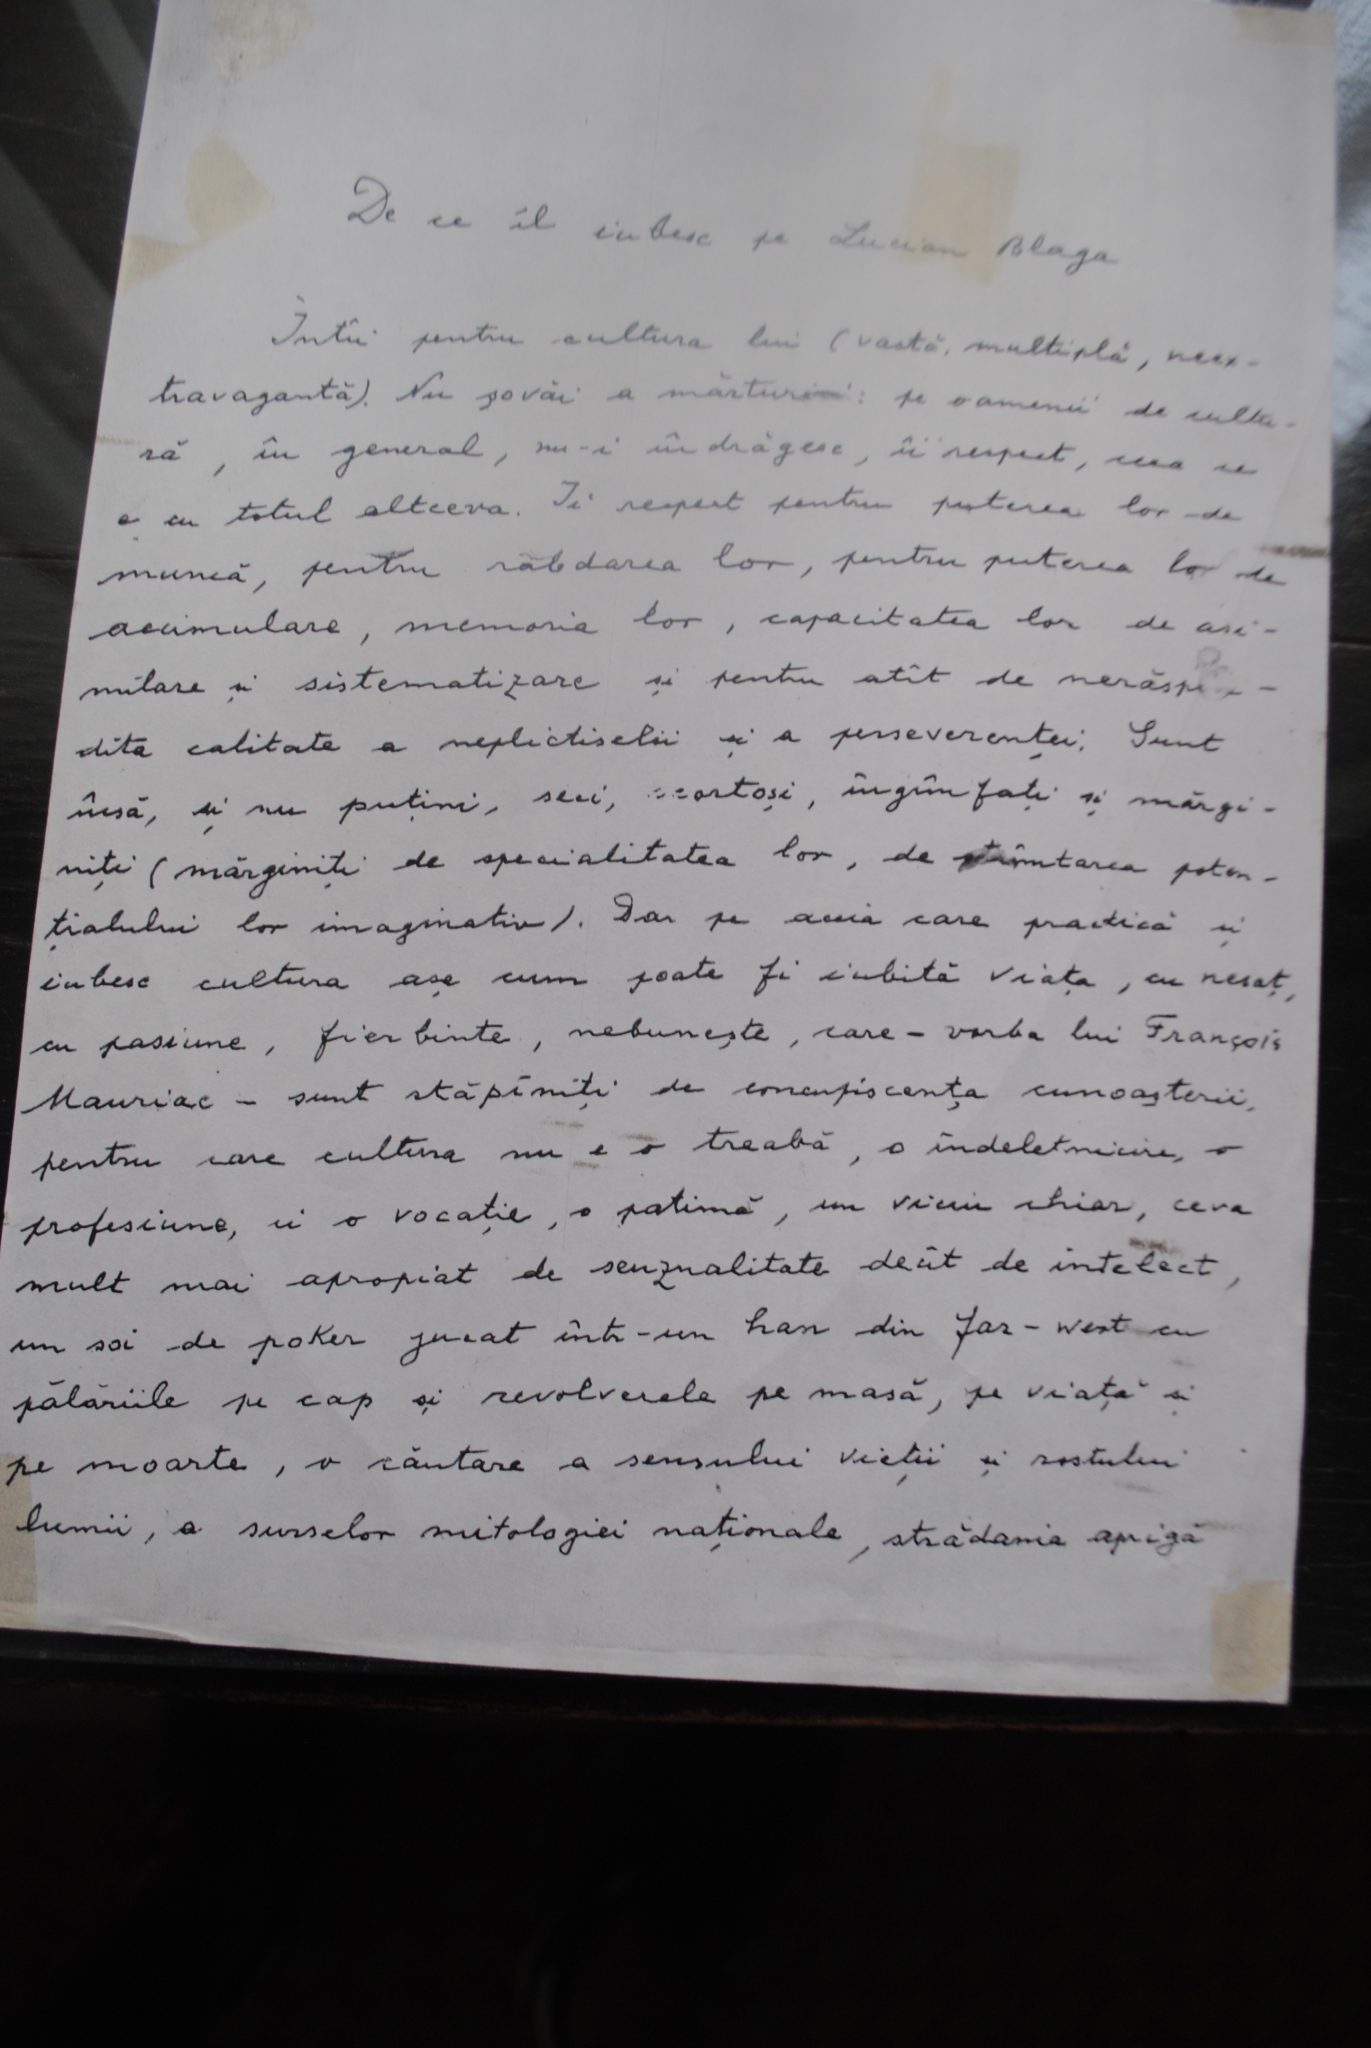 De ce îl iubesc pe Lucian Blaga
Întîi pentru cultura lui (vastă, multiplă, neex-
travagantă). Nu șovăi a mărturisi: pe oamenii de cultu-
ră, în general, nu-i îndrăgesc, îi respect, ceea ce
e cu totul altceva. Îi respect pentru puterea lor de
muncă, pentru răbdarea lor, pentru puterea lor de
acumulare, memoria lor, capacitatea lor de asi-
milare și sistematizare și pentru atît de nerăspîn-
dita calitate a neplictiselii și a perseverenței. Sunt
însă, și nu puțini, seci, scorțoși, îngîmfați și mărgi-
niți (mărginiți de specialitatea lor, de strîmtarea poten-
țialului lor imaginativ). Dar pe aceia care practică și
iubesc cultura așa cum poate fi iubită viața, cu nesaț,
cu pasiune, fierbinte, nebunește, care - vorba lui François
Mauriac - sunt stăpîniți de concupiscența cunoașterii,
pentru care cultura nu e o treabă, o îndeletnicire, o
profesiune, ci o vocație, o patimă, un viciu chiar, ceva
mult mai apropiat de senzualitate decît de intelect,
un soi de poker jucat într-un han din far-west cu
pălăriile pe cap și revolverele pe masă, pe viață și
pe moarte, o căutare a sensului vieții și rostului
lumii, a surselor mitologiei naționale, strădania aprigă